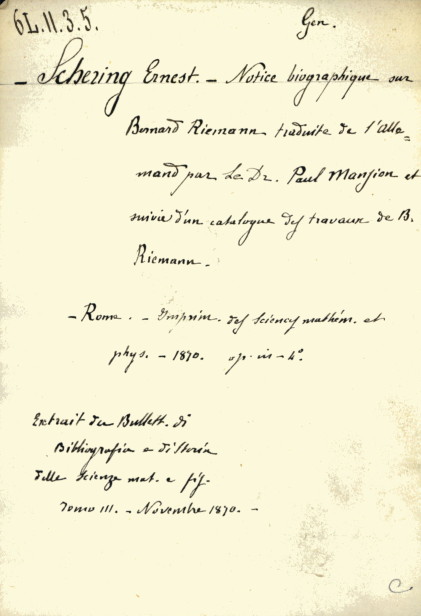 6L.II.3.5.
Gen.
- Schering Ernest. - Notice biographique sur
Bernard Riemann traduite de l'Alle=
mand par Le Dr. Paul Mansion et
suivie d'un catalogue des travaux de B.
Riemann.
- Rome. - Imprim. des Sciences mathém. et
phys. - 1870. op. in - 4°.
Extrait du Bullett. di
Bibliografia e di Storia
delle Scienze mat. e fis.
Tomo III. - Novembre 1870. -
C